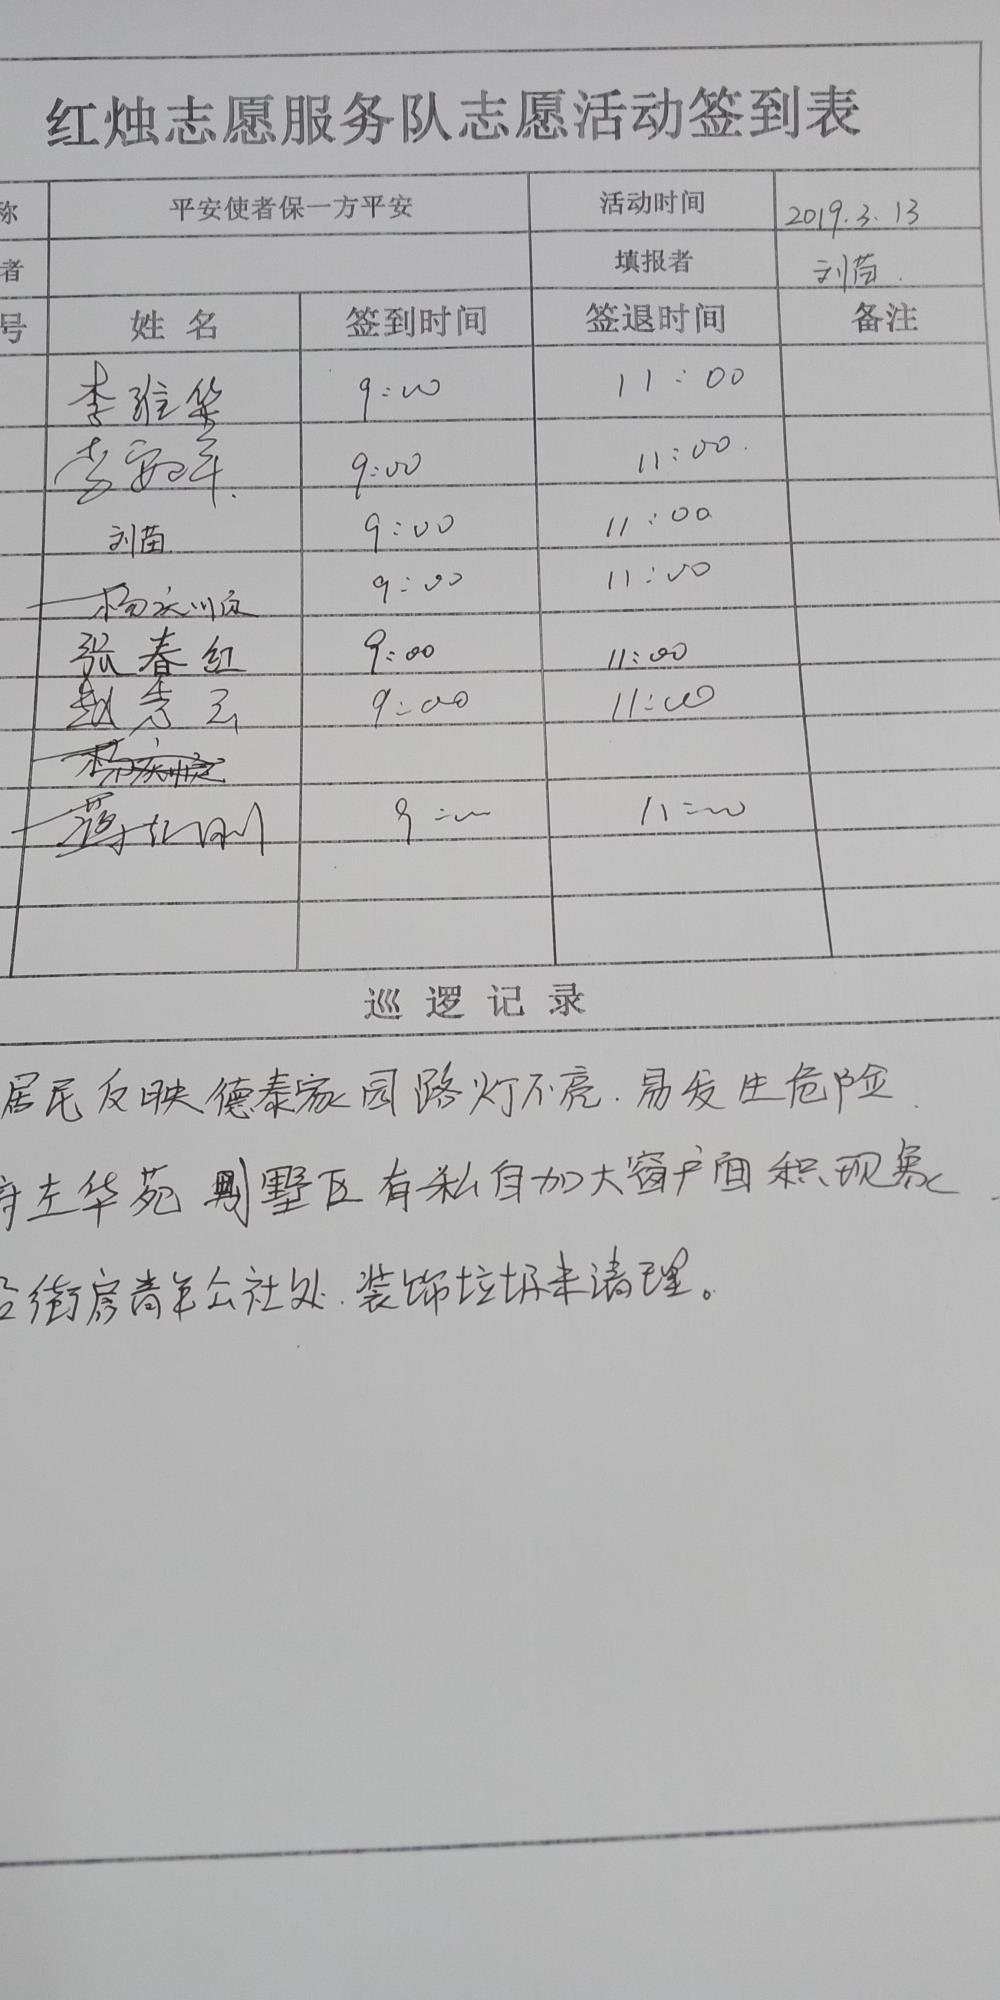 红烛志愿服务队志愿活动签到表
称 平安使者保一方平安 活动时间 2019.3.13
者 填报者 刘苗
号 姓名 签到时间 签退时间 备注
李 华 9:00 11:00
李 军 9:00 11:00
刘苗 9:00 11:00
杨 9:00 11:00
张春红 9:00 11:00
赵秀云 9:00 11:00
9:00 11:00
巡逻记录
居民反映德泰家园路灯不亮.易发生危险
左华苑别墅区有私自加大窗户面积现象
街房青年公社处.装饰垃圾未清理。